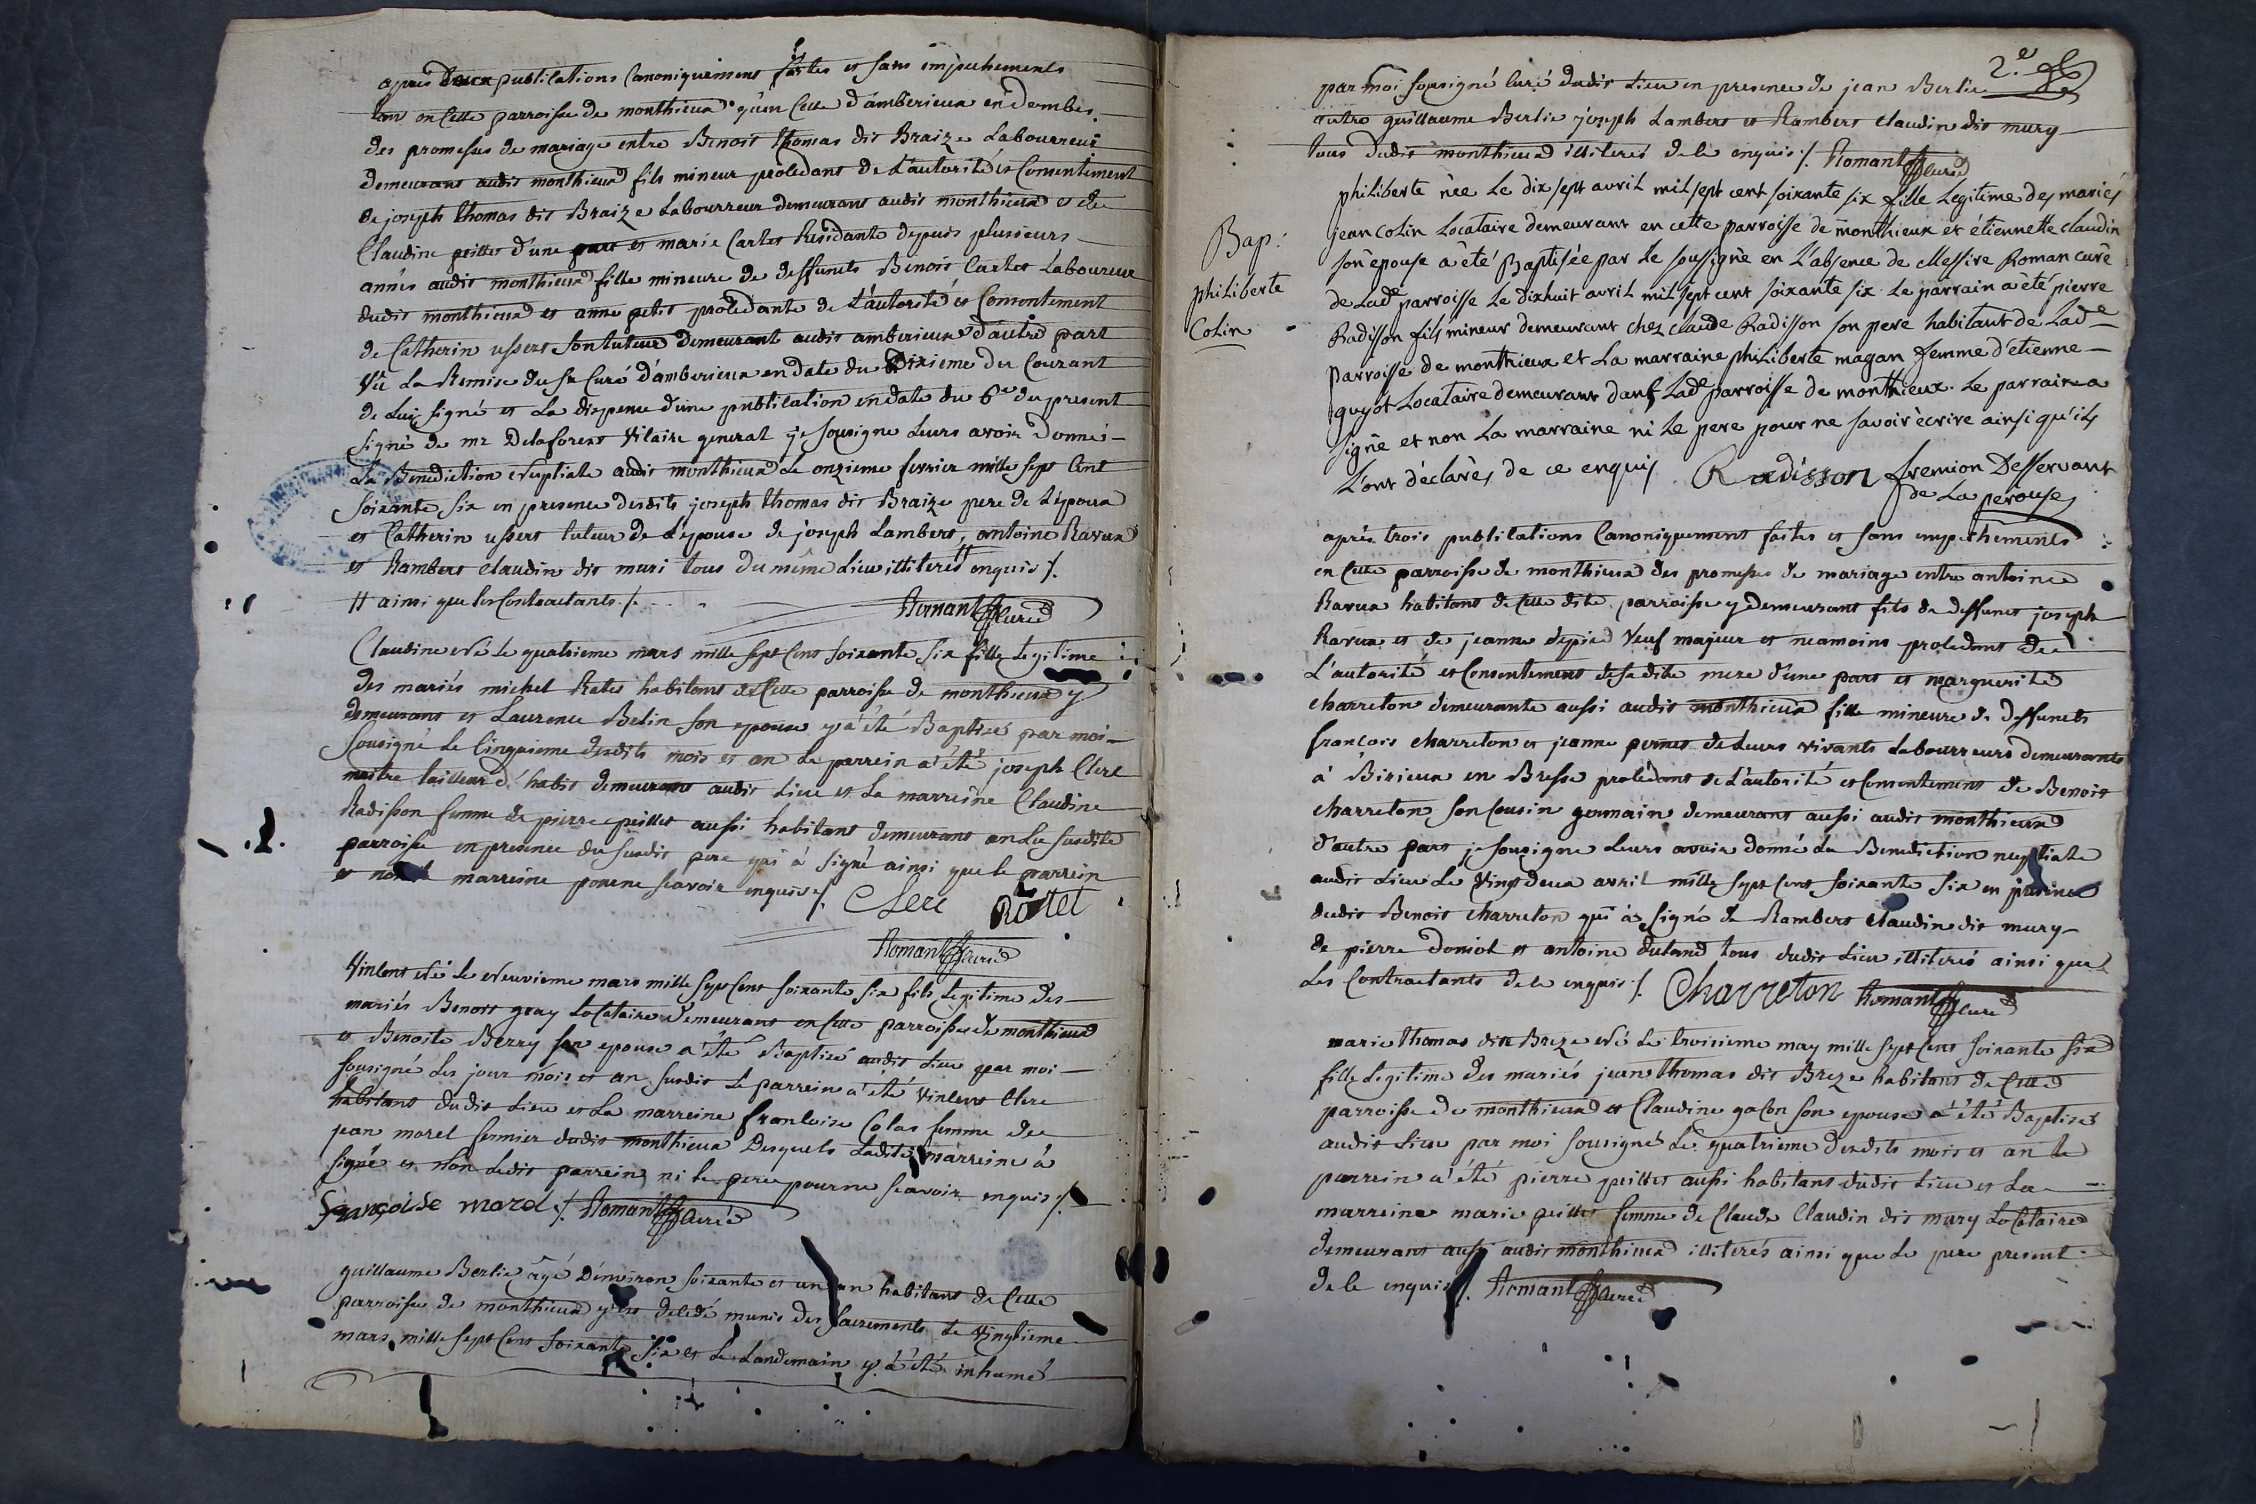 après deux publications Canoniquement faites et sans impechements
tant en Cette parroisse de monthieux qu'en Celle d'amberieux en dombes
des promesses de mariage entre Benoit thomas dit Braize Labourreur
demeurant audit monthieux fils mineur procedant de L'autorité et Consentement
de joseph thomas dit Braize Labourreur demeurant audit monthieux et de
Claudine peillet d'une part et marie Cartet Residante depuis plusieurs
annés audit monthieux fille mineure de deffunts Benoit Cartet Laboureur
dudit monthieux et anne petit procedante de L'autorité et Consentement
de Catherin ussert son tuteur demeurant audit amberieux d'autre part
Vû La Remise du Sr Curé d'amberieux en date du dixieme du Courant
de Lui signé et La dispense d'une publication en date du 6e du present
signé de mr Delaforest Vicaire general je sousigne Leurs avoir donné
La Benediction Nuptiale audit monthieux Le onzieme fevrier mille sept Cent
soixante six en presence desdits joseph thomas dit Braize pere de L'époux
et Catherin ussert tuteur de L'epouse de joseph Lambert, antoine Ravux
et Rambert claudin dit muri tous du même Lieu illiterés enquis ./.
// ainsi que les Contractants ./.
Romant Curé
Claudine Né Le quatrieme mars mille sept Cent soixante six fille Legitime
des mariés michel Ratet habitant de Cette parroisse de monthieux y
demeurant et Laurence Belin son epouse y a été Baptisé par moi
sousigné Le Cinquieme desdits mois et an Le parrein a été joseph Clerc
maitre tailleur d'habit demeurant audit Lieu et La marreine Claudine
Radisson femme de pierre peillet aussi habitant demeurant en La susdite
parroisse en presence du susdit pere qui a signé ainsi que le parrein
et non La marreine pour ne scavoir enquis ./. Clerc Ratet
Romant Curé
Vincent Né le Neuvieme mars mille sept Cent soixante six fils Legitime des
mariés Benoit gray Locataire demeurant en Cette parroisse de monthieux
et Benoite Berry son epouse a été Baptisé audit Lieu par moi
sousigné Les jour mois et an susdit Le parrein a été Vincent Clerc
habitant dudit Lieu et La marreine francoise Colas femme de
jean morel fermier dudit monthieux Desquels Ladite marreine a
signé et Non Ledit parrein ni le pere pour ne scavoir enquis ./.
françoise morel ./. Romant Curé
guillaume Berlie agé d'environ soixante et un an habitant de Cette
parroisse de monthieux y est decedé munis des sacrements Le Vingtieme
mars mille sept Cent soixante six et Le Landemain y a été inhumé
2.e
par moi sousigné Curé dudit Lieu en presence de jean Berlie
autre guillaume Berlie joseph Lambert et Rambert Claudin dit mury
tous dudit monthieux illiterés de le enquis ./. Romant Curé
Bap:
philiberte
Colin
philiberte née Le dix sept avril mil sept cent soixante six fille Legitime des mariés
jean Colin Locataire demeurant en cette parroisse de monthieux et étiennette claudin
son épouse a été Baptisée par Le soussigné en L'absence de Messire Roman curé
de Lade parroisse Le dixhuit avril mil sept cent soixante six Le parrain a été pierre
Radisson fils mineur demeurant chez claude Radisson son pere habitant de Lade
parroisse de monthieux et La marraine philiberte magan femme d'etienne
guyot Locataire demeurant dans Lade parroisse de monthieux. Le parrain a
signé et non La marraine ni Le pere pour ne savoir ècrire ainsi qu'ils
L'ont déclarés de ce enquis Radisson fremion Desservant
de La perouse
après trois publications Canoniquement faites et sans impechements
en Cette parroisse de monthieux des promesses de mariage entre antoine
Ravux habitant de Cette dite parroisse y demeurant fils de deffunt joseph
Ravux et de jeanne depied Veuf majeur et neamoins procedant de
L'autorité et Consentement de sa dite mere d'une part et marguerite
charreton demeurante aussi audit monthieux fille mineure de deffunts
francois charreton et jeanne pernet de Leurs vivants Labourreurs demeurants
à Birieux en Bresse procedant de L'autorité et Consentement de Benoit
charreton son Cousin germain demeurant aussi audit monthieux
d'autre part je sousigne Leurs avoir donné La Benediction nuptiale
audit Lieu Le Vingt deux avril mille sept Cent soixante six en presence
dudit Benoit charreton qui a signé de Rambert Claudin dit mury
de pierre doniol et antoine duland tous dudit Lieu illiterés ainsi que
Les Contractants de le enquis ./. Charreton Romant Curé
marie thomas dite Breze Né Le troisieme may mille sept Cent soixante six
fille Legitime des mariés jean thomas dit Breze habitant de Cette
parroisse de monthieux et Claudine gacon son epouse a été Baptisé
audit Lieu par moi sousigné Le quatrieme desdits mois et an le
parrein a été pierre peillet aussi habitant dudit Lieu et La
marreine marie peillet femme de Claude Claudin dit mury Locataire
demeurant aussi audit monthieux illiterés ainsi que Le pere present
de le enquis ./. Romant Curé